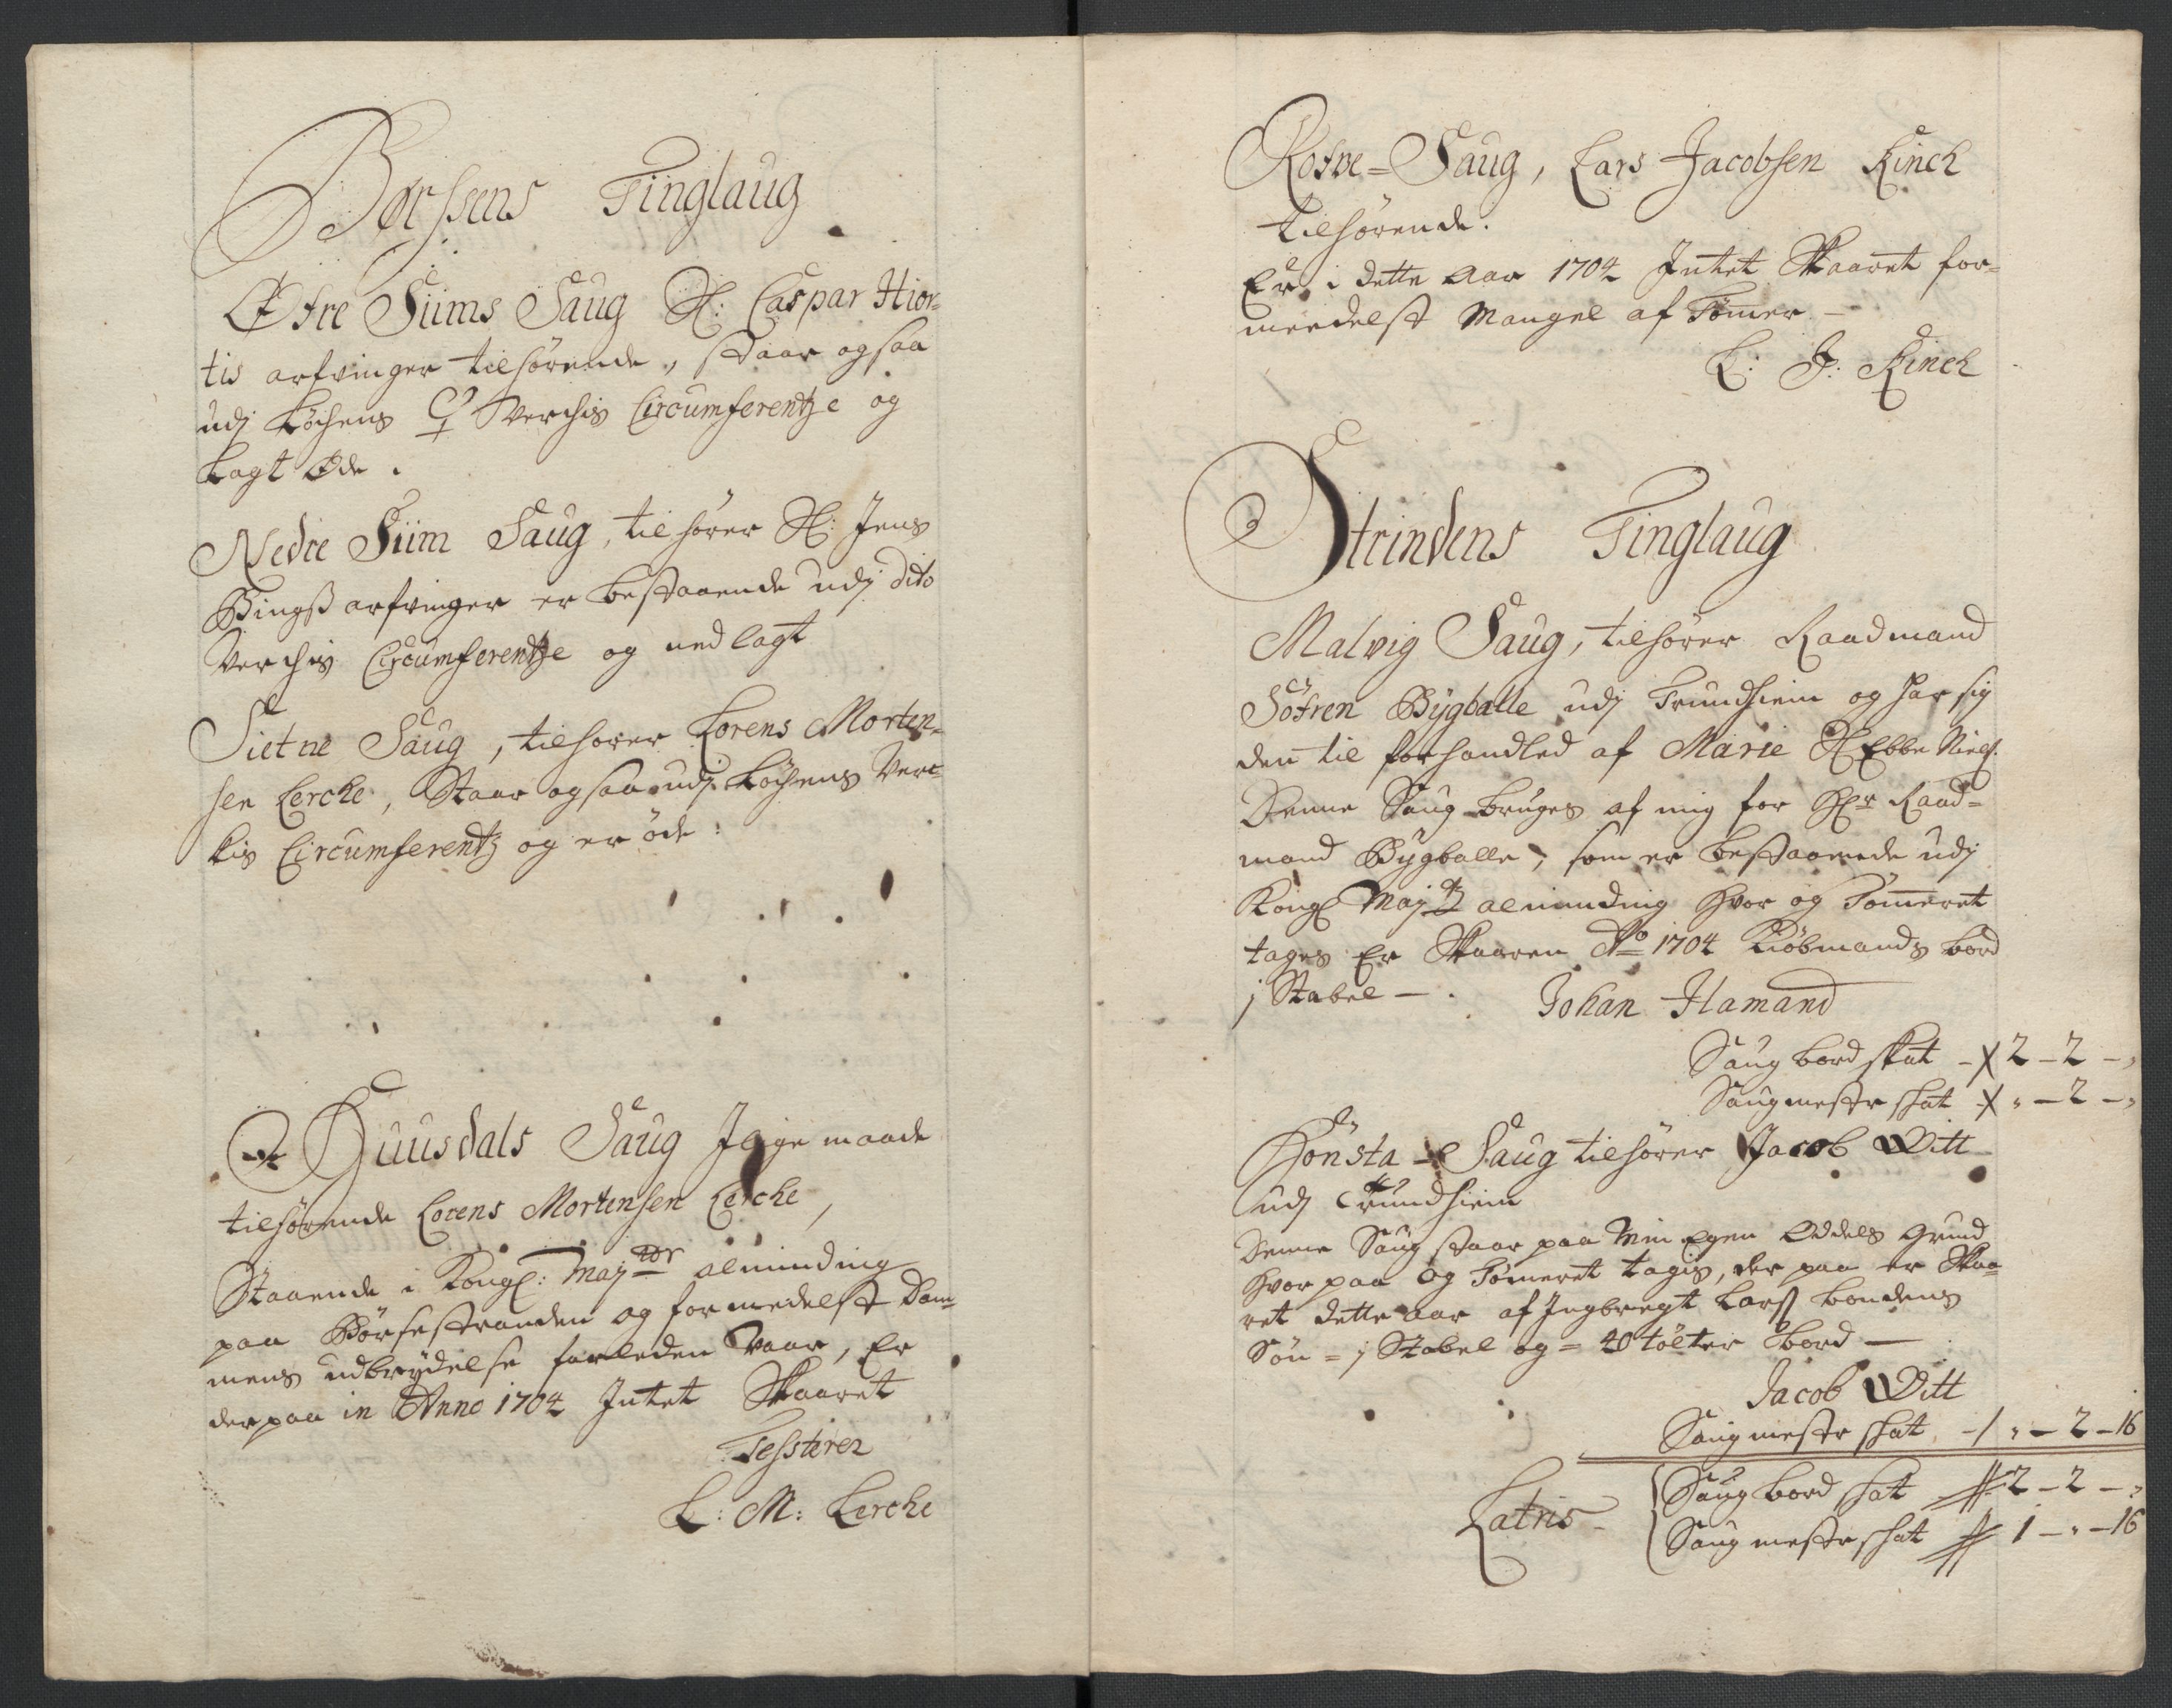 Børssens Tinglaug
Øfre Siims Saug S: Caspar Hior-
tis arfvinger tilhørende, staar ogsaa
udj Løchens ♀ Verchis Circumferentze og
Lagt Øde.
Nedre Siim Saug, tilhører S: Jens
Bingß arfvinger er bestaaende udj dito
Verchis Circumferentze og nedlagt
Sietne Saug, tilhører Lorens Morten-
sen Lerche, Staar ogsaa udj Løchens Ver-
kis Circumferentz og er øde:
Huusdals Saug J lige maade
tilhørende Lorens Mortensen Lerche,
Staaende i Kongl: Maj:ter alminding
paa Børsestranden og formedelst Dam-
mens udbrydelse forleden Vaar, Er
derpaa in Anno 1704 Intet Skaaret
Testerer
L: M: Lerche
Rosve-Saug, Lars Jacobsen Kinch
tilhørende.
Er i dette Aar 1704 Intet Skaaret for-
meedelst Mangel af Tømer -
L: J: Kinch
Strindens Tinglaug
Malvig Saug, tilhører Raadmand
Søfren Bygballe udj Trundhiem og har sig
den til forhandled af Marie S Ebbe Niels.
Denne Saug bruges af mig for Hr Raad-
mand Bygballe, som er bestaaende udj
Kongl Maj:tz alminding hvor og Tømeret
tages Er Skaaren Ao 1704 Kiöbmands bord
j Stabel -.
Johan Hamand
Saug bord skat - 2 - 2 - "
Saugmester skat " - 2 - "
Hønsta - Saug tilhører Jacob Witt
udj Trundhiem
Denne Saug staar paa Min Egen Oddels Grund
hvor paa og Tømeret tagis, der paa er Skaa-
ret dette aar af Ingbregt Larß bondens
Søn = j Stabel og = 40 tölter bord -
Jacob Witt
Saugmester skat - " - 2 - 16
Latris - Saug bord skat 2 - 2 - "
Saug mester skat 1 - " - 16